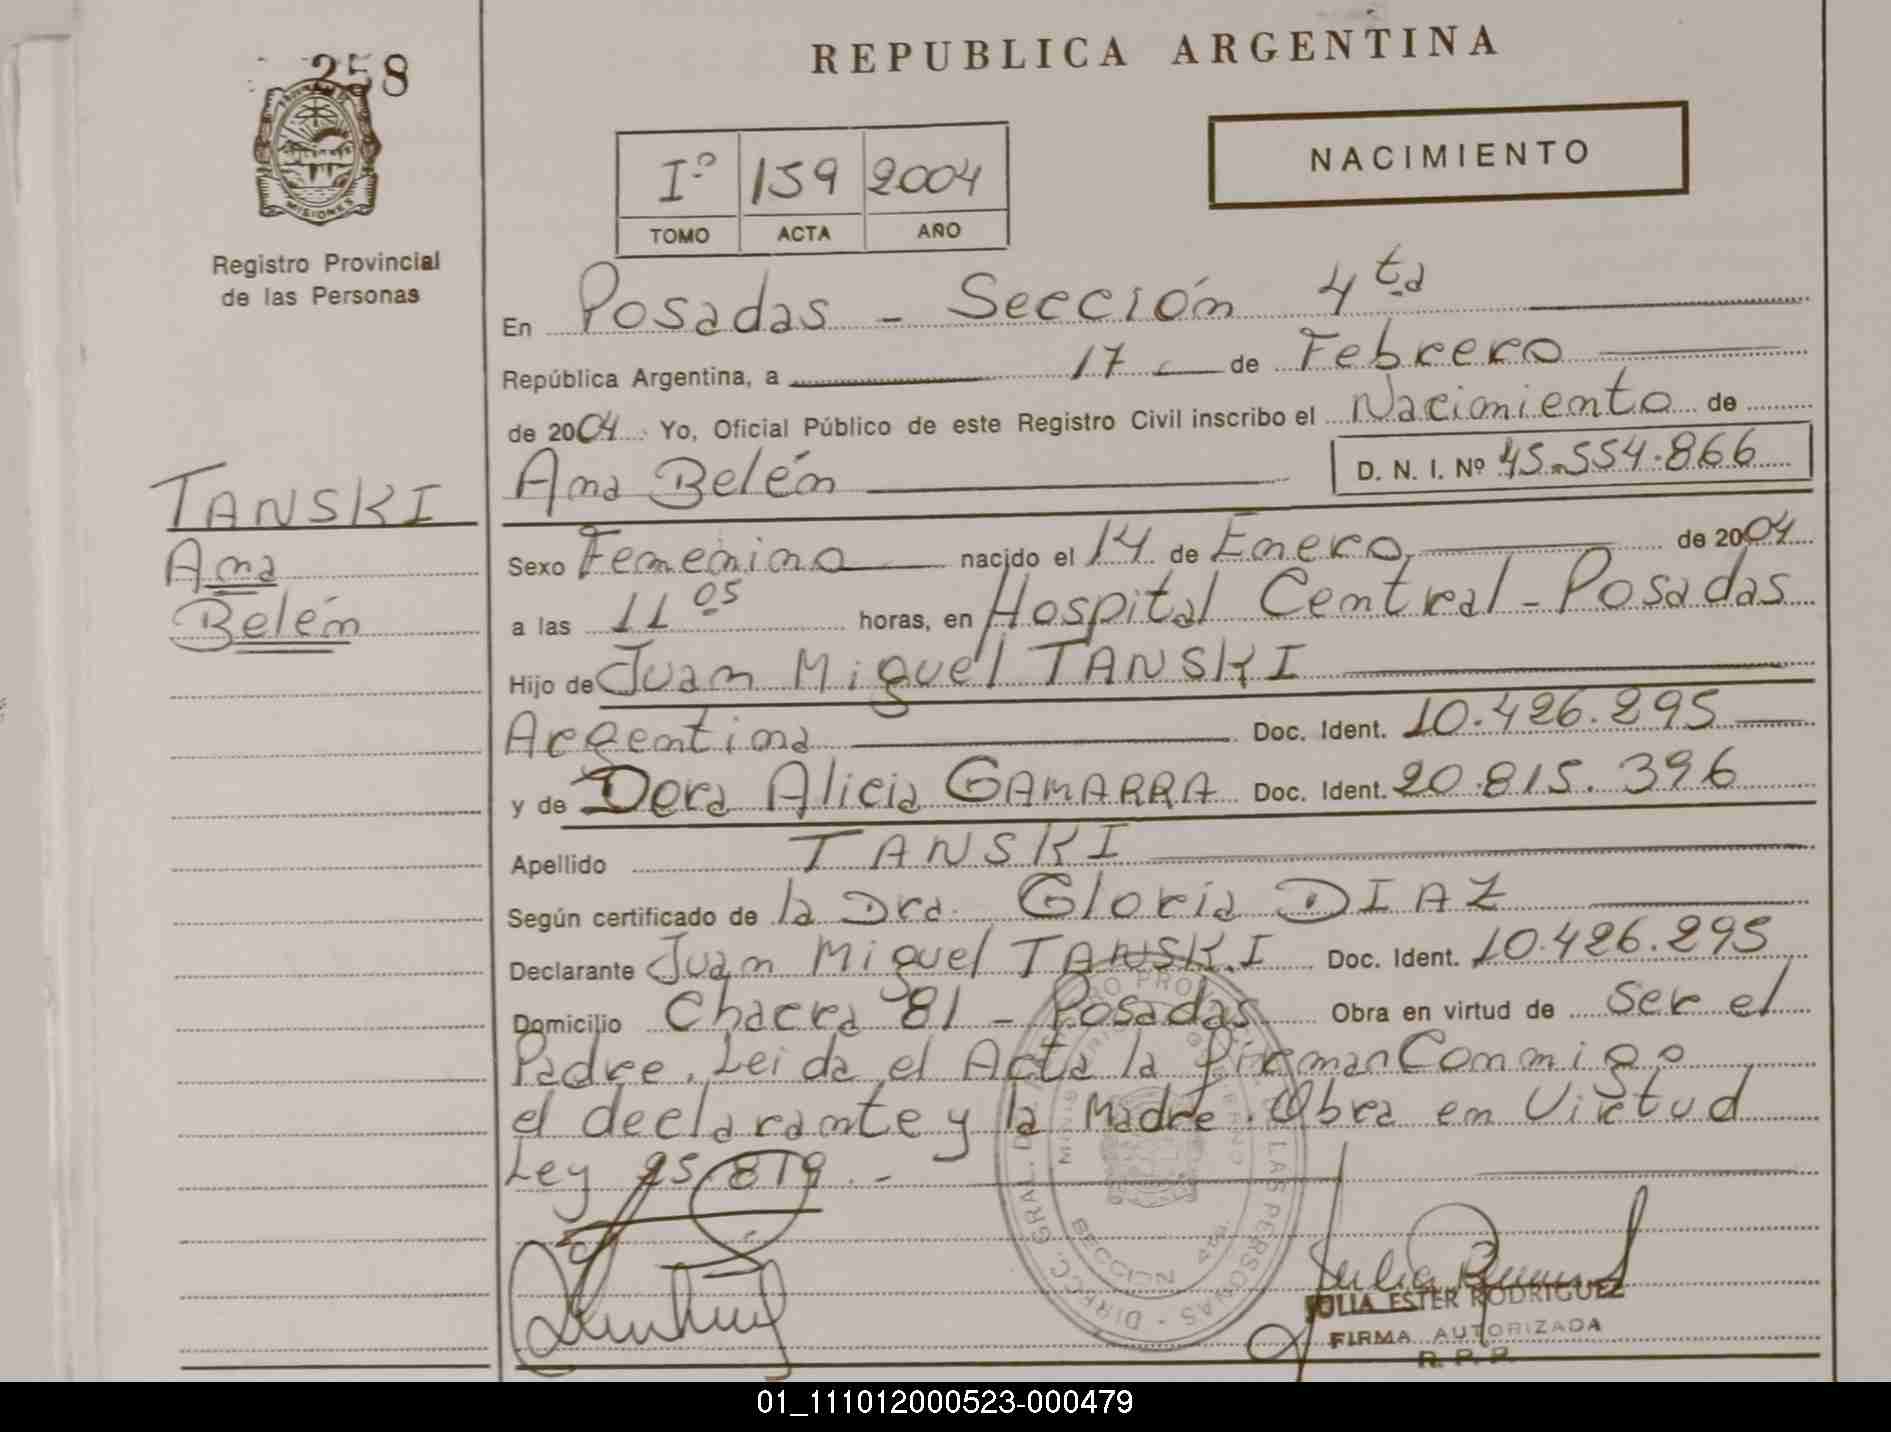 258
MISIONES
Registro Provincial
de las Personas
REPUBLICA ARGENTINA
NACIMIENTO
Iº 159 2004
TOMO ACTA AÑO
En Posadas - Sección 4ta
República Argentina, a 17 de Febrero
de 2004 Yo, Oficial Público de este Registro Civil inscribo el Nacimiento de
Ana Belén D. N. I. Nº 45.554.866
TANSKI
Ana
Belén
Sexo Femenino nacido el 14 de Enero de 2004
a las 11 05 horas, en Hospital Central - Posadas
Hijo de Juan Miguel TANSKI
Argentina Doc. Ident. 10.426.295
y de Dora Alicia GAMARRA Doc. Ident. 20.815.396
Apellido TANSKI
Según certificado de la Dra. Gloria DIAZ
Declarante Juan Miguel TANSKI Doc. Ident. 10.426.295
Domicilio Chacra 81 - Posadas Obra en virtud de ser el
Padre. Leida el Acta la firman Conmigo
el declarante y la Madre. Obra en Virtud
Ley 25.819.-
DIRECC. GRAL. DE LAS PERSONAS
SECCION 4ta.
JULIA ESTER RODRIGUEZ
FIRMA AUTORIZADA
R. P. P.
01_111012000523-000479